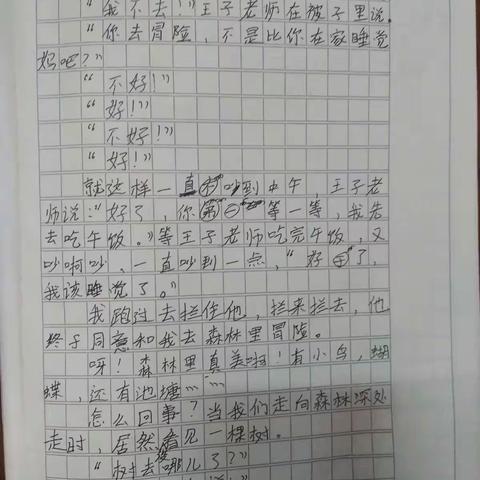 “我不去！”王子老师在被子里说。
“你去冒险，不是比你在家睡觉
妈吧？”
“不好！”
“好！”
“不好！”
“好！”
就这样一直吵到中午，王子老
师说：“好了，你等一等，我先
去吃午饭。”等王子老师吃完午饭，又
吵啊吵，一直吵到一点，“好了，
我该睡觉了。”
我跑过去拦住他，拦来拦去，他
终于同意和我去森林里冒险。
呀！森林里真美啊！有小鸟，蝴
蝶，还有池塘……
怎么回事？当我们走向森林深处
走时，居然看见一棵树。
“树去哪儿了？”